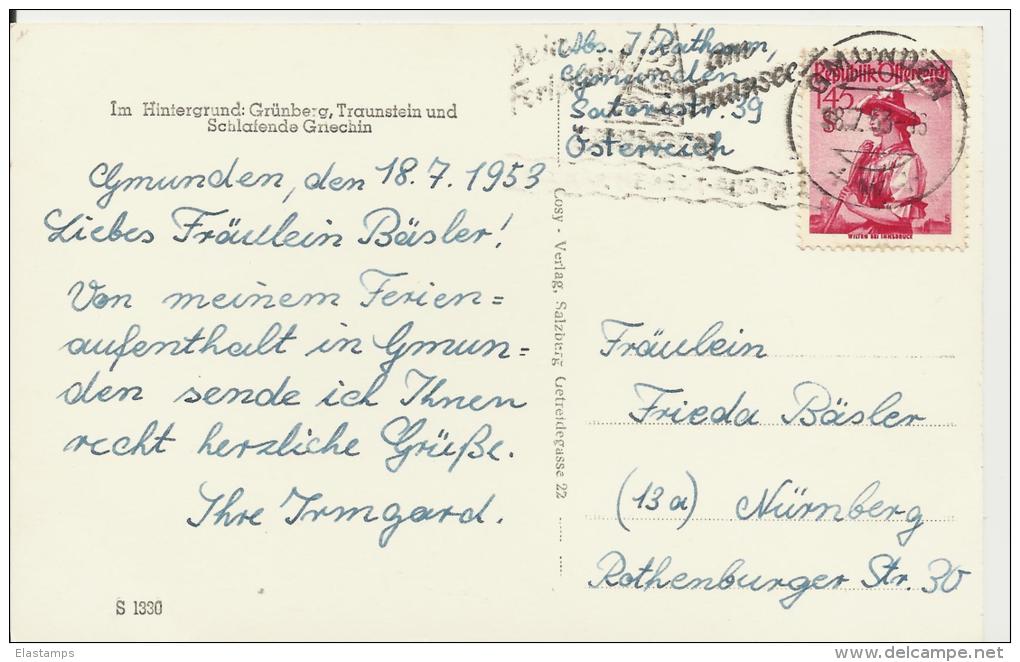 Im Hintergrund: Grünberg, Traunstein und
Schlafende Griechin
Gmunden, den 18.7.1953
Liebes Fräulein Bäsler!
Von meinem Ferien=
aufenthalt in Gmun=
den sende ich Ihnen
recht herzliche Grüße.
Ihre Irmgard.
S 1330
Cosy - Verlag, Salzburg Getreidegasse 22
Abs. J. Rathsam,
Gmunden
Satoristr. 39
Österreich
Dein
am
Traunsee
GMUNDEN
18.7.53-16
Republik Österreich
145
S
WILTEN BEI INNSBRUCK
Fräulein
Frieda Bäsler
(13a) Nürnberg
Rothenburger Str. 30
Elastamps
www.delcampe.net